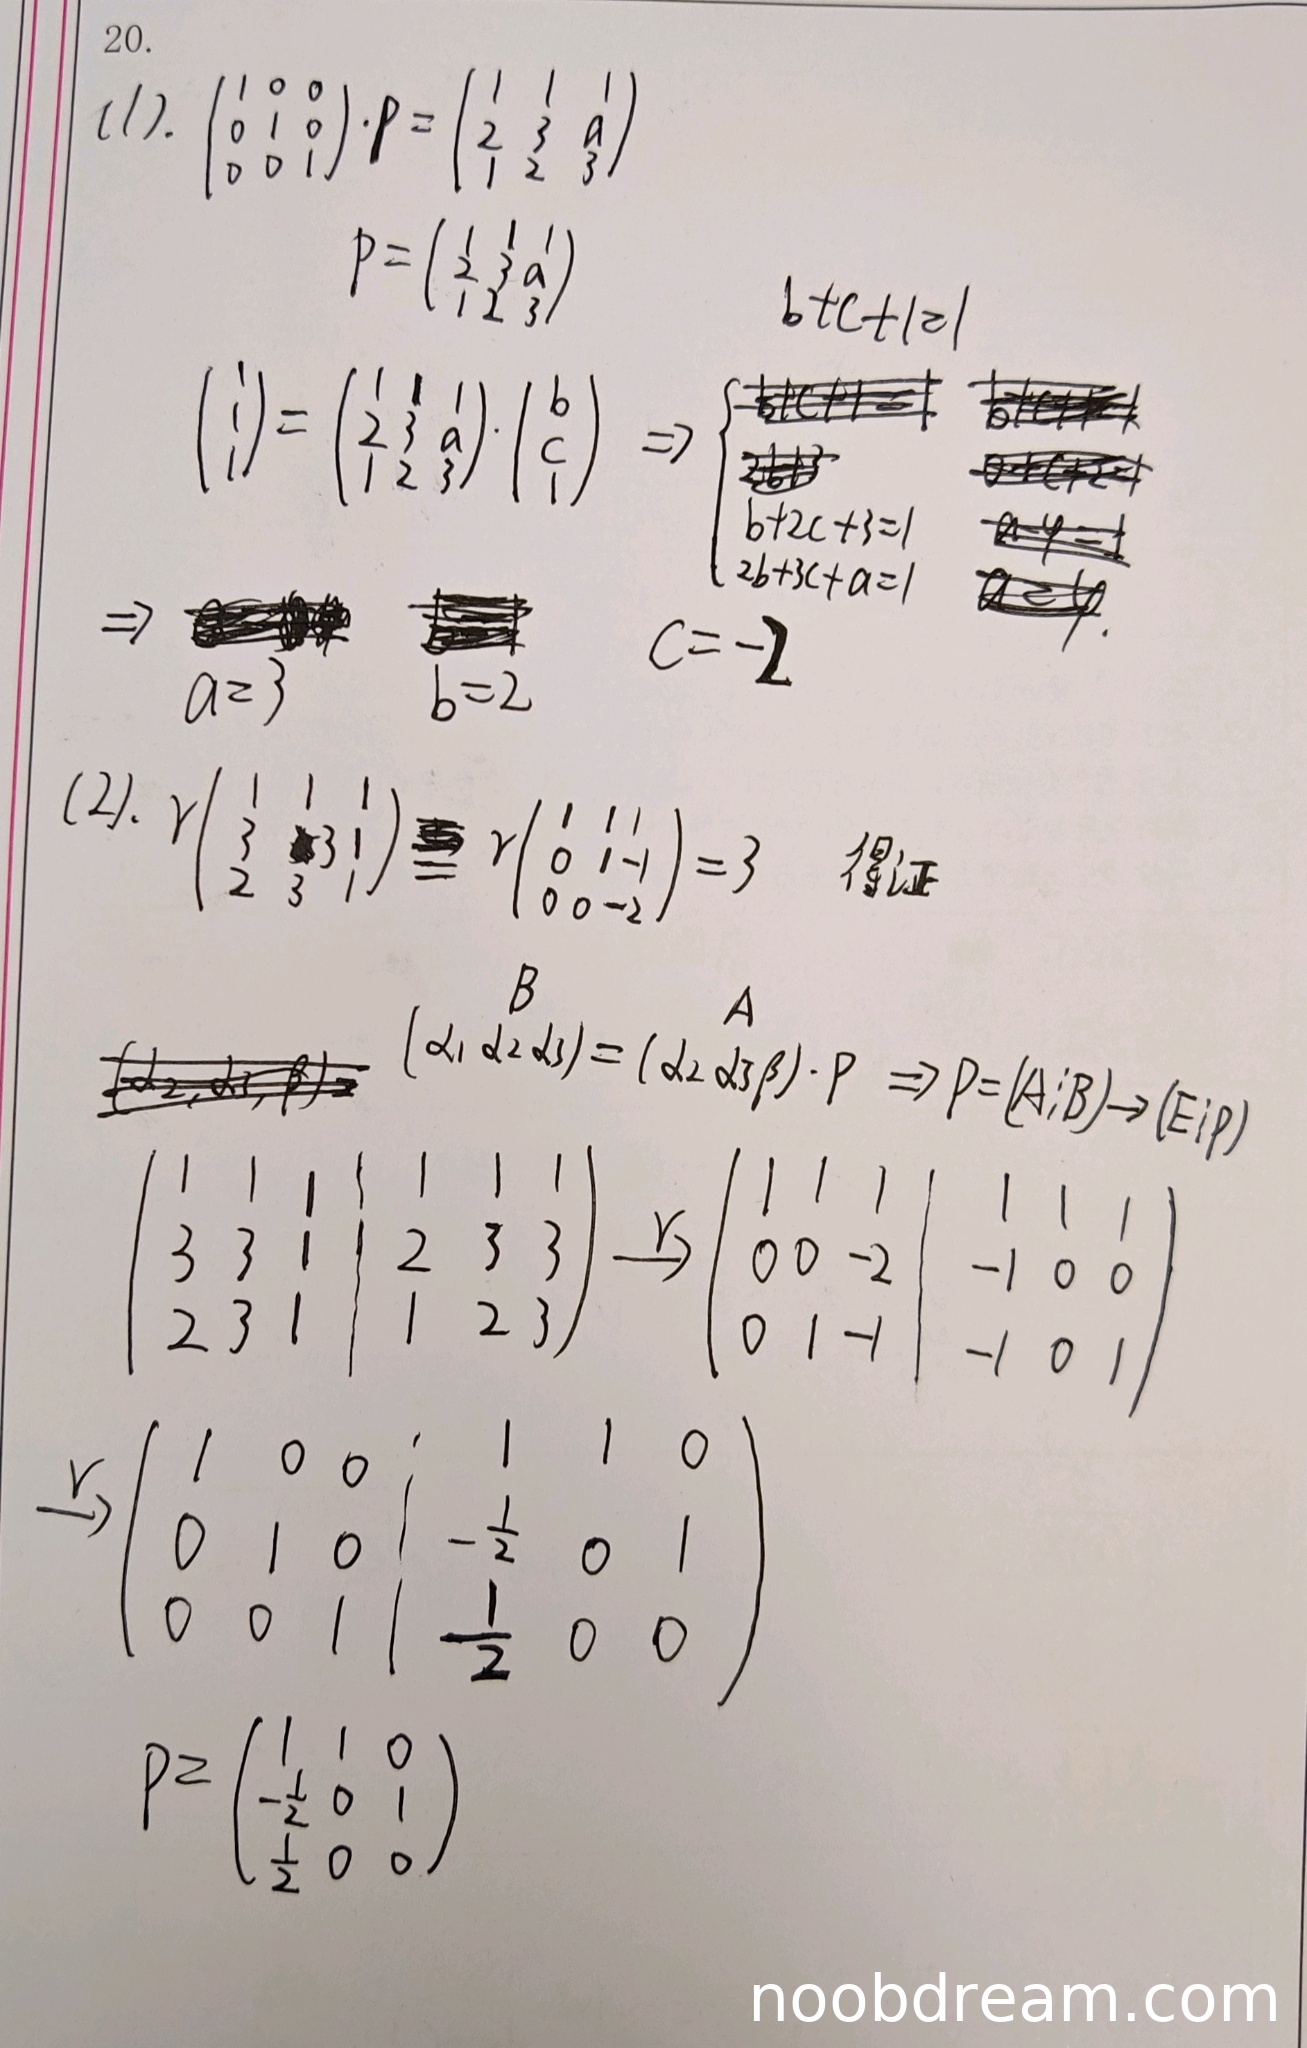 20.
(1). (1 0 0 / 0 1 0 / 0 0 1) · P = (1 1 1 / 2 3 a / 1 2 3)
P = (1 1 1 / 2 3 a / 1 2 3)
b+c+1=1
(1 / 1 / 1) = (1 1 1 / 2 3 a / 1 2 3) · (b / c / 1) ⇒ { b+2c+3=1
2b+3c+a=1
⇒ a=3 b=2 c=-2
(2). r(1 1 1 / 3 3 1 / 2 3 1) = r(1 1 1 / 0 1 -1 / 0 0 -2) = 3 得证
B A
(α1 α2 α3) = (α2 α3 β) · P ⇒ P = (A¦B) → (E¦P)
(1 1 1 | 1 1 1 / 3 3 1 | 2 3 3 / 2 3 1 | 1 2 3) r→ (1 1 1 | 1 1 1 / 0 0 -2 | -1 0 0 / 0 1 -1 | -1 0 1)
r→ (1 0 0 | 1 1 0 / 0 1 0 | -1/2 0 1 / 0 0 1 | 1/2 0 0)
P = (1 1 0 / -1/2 0 1 / 1/2 0 0)
noobdream.com